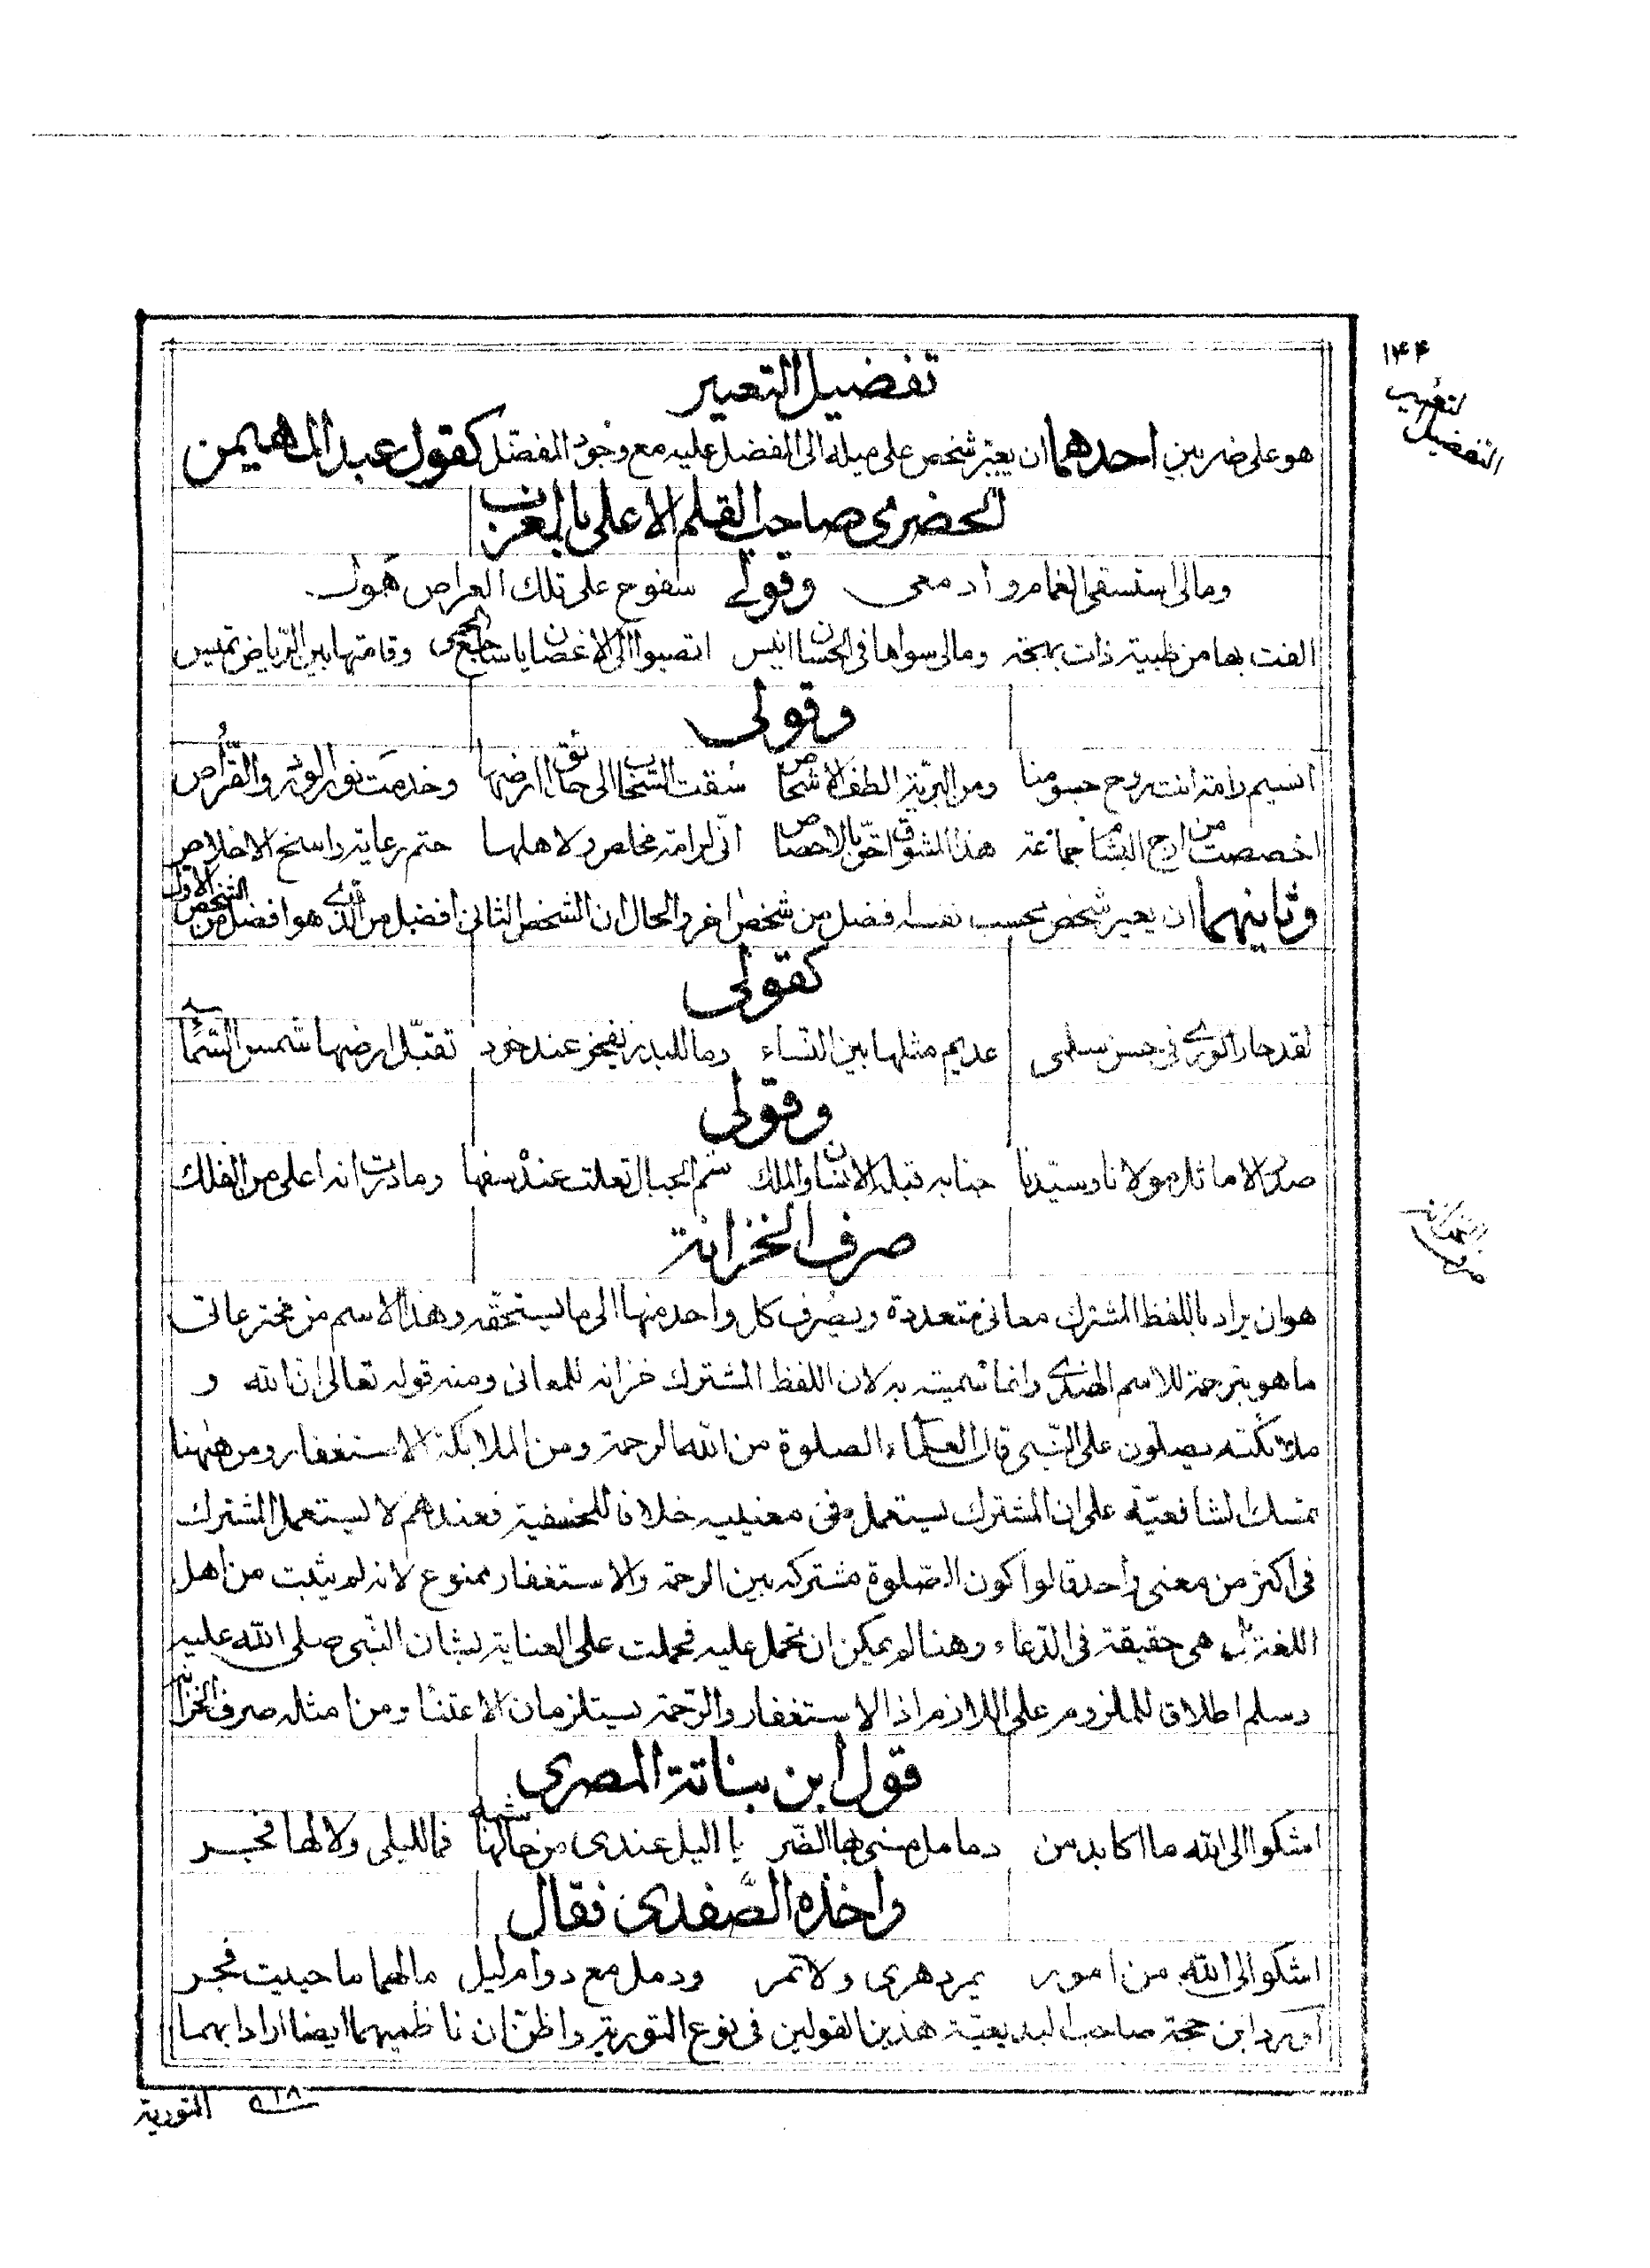 ١٤٤
تفضيل التعيير
هو على ضربين احدهما ان يعيّر شخص على ميله الى المفضل عليه مع وجود المفضّل كقول عبد المهيمن
الحضرمى صاحب القلم الاعلى بالمغرب
ومالى استسقى الغمام وادمعى وقولے سفوح على تلك العراص همول
الفت بها من ظبية ذات بهجة ومالى سواها فى الحسان انيس اتصبوا الى الاغصان يا ساجع وقامتها بين الرياض تميس
وقولى
انسيم رامة انت روح جسومنا ومن البريّة الطف الاشخاص سُقت السّحاب الى حدائق ارضها وخدمت نور الورد والقُرّاص
اخصصت من ارج البشام جماعة هذا المشوق احقّ بالاخصاص انّى لرامة مخلص ولاهلها حتم رعاية راسخ الاخلاص
وثانيهما ان يعير شخص بحسب نفسه افضل من شخص اخر والحال ان الشخص الثانى افضل من الذے هو افضل من الشخص الاول
كقولى
لقد حار الورے فى حسن سلمى عديم مثلها بين النساء وما للبدر يفخر عند خود تقبّل ارضها شمس السّماء
وقولى
صدر الاماثل مولانا وسيّدنا جنابه قبلة الانسان والملك شم الجبال تعلت عند سفها وما درت انه اعلى من الفلك
صرف الخزانة
هو ان يراد باللفظ المشترك معانى متعددة ويصرف كل واحد منها الى ما يستحقّه وهذا الاسم من مخترعاتى
ما هو بترجمة للاسم الهندے وانما سميته به لان اللفظ المشترك خزانه للمعانى ومنه قوله تعالى ان الله و
ملائكته يصلون على النّبى قال العلماء الصلوة من الله الرحمة ومن الملائكة الاستغفار ومن هٰهنا
تمسك الشافعيّة على ان المشترك يستعمل فى معنييه خلافا للحنفية فعندهم لا يستعمل المشترك
فى اكثر من معنى واحد قالوا كون الصّلوة مشتركه بين الرحمة والاستغفار ممنوع لانه لم يثبت من اهل
اللغة بل هى حقيقة فى الدّعاء وهنا لم يمكن ان تحمل عليه فحملت على العناية بشان النّبى صلى الله عليه
وسلم اطلاق للملزوم على اللازم اذ الاستغفار والرّحمة يستلزمان الاعتناء ومن امثله صرف الخزانة
قول ابن نباتة المصرى
اشكوا الى الله ما اكابد من دمامل مسنى بها الضّر يا اليل عندى من حالها شبه فما لليلى ولا لها فجر
واخذه الصّفدى فقال
اشكوا الى الله من امور يمر دهرى ولا تمر ودمل مع دوام ليل مالهما ما حييت فجر
اورد ابن حجة صاحب البديعيّة هذين القولين فى نوع التورية واظنّ ان ناظميهما ايضا ارادا بهما
التورية